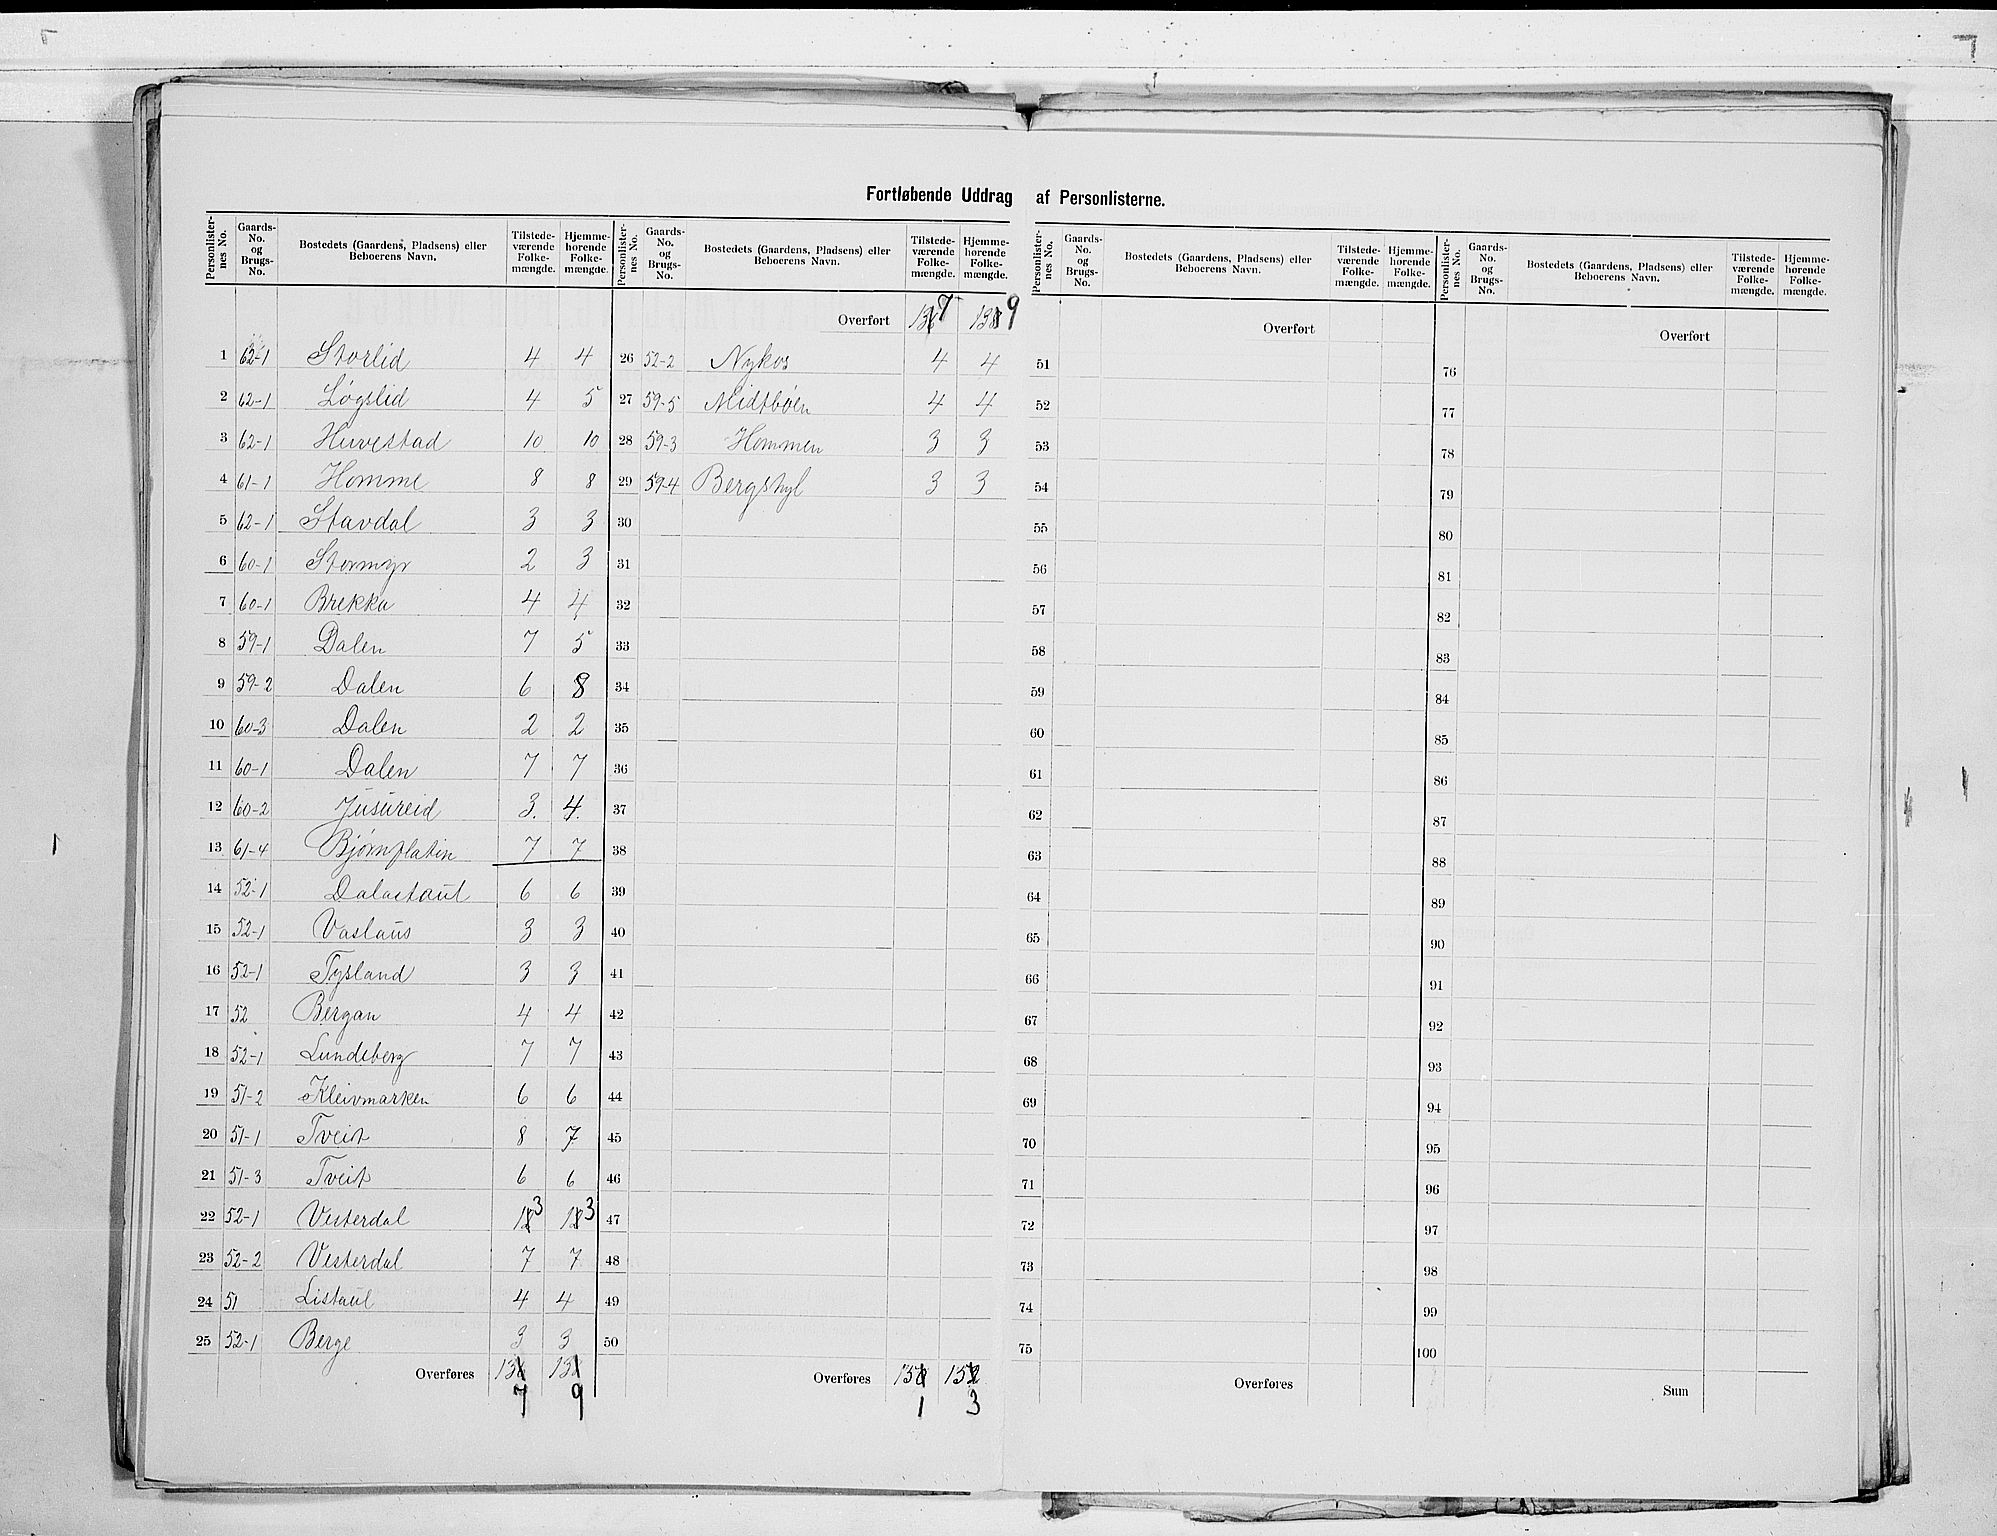 Fortløbende Uddrag af Personlisterne.
Personlisternes No. Gaards-No. og Brugs-No. Bostedets (Gaardens, Pladsens) eller Beboerens Navn. Tilstedeværende Folkemængde. Hjemmehørende Folkemængde.
1 62-1 Storlid 4 4
2 62-1 Løgslid 4 5
3 62-1 Huvestad 10 10
4 61-1 Homme 8 8
5 62-1 Stavdal 3 3
6 60-1 Stormyr 2 3
7 60-1 Brekka 4 4
8 59-1 Dalen 7 5
9 59-2 Dalen 6 8
10 60-3 Dalen 2 2
11 60-1 Dalen 7 7
12 60-2 Jusureid 3. 4.
13 61-4 Bjørnflatin 7 7
14 52-1 Dalastaul 6 6
15 52-1 Vaslaus 3 3
16 52-1 Tysland 3 3
17 52 Bergan 4 4
18 52-1 Lundeberg 7 7
19 51-2 Kleivmarken 6 6
20 51-1 Tveit 8 7
21 51-3 Tveit 6 6
22 52-1 Vesterdal 13 13
23 52-2 Vesterdal 7 7
24 51 Listaul 4 4
25 52-1 Berge 3 3
Overføres 137 139
Personlisternes No. Gaards-No. og Brugs-No. Bostedets (Gaardens, Pladsens) eller Beboerens Navn. Tilstedeværende Folkemængde. Hjemmehørende Folkemængde.
Overført 137 139
26 52-2 Nykos 4 4
27 59-5 Midtbøen 4 4
28 59-3 Hommen 3 3
29 59-4 Bergshyl 3 3
30
31
32
33
34
35
36
37
38
39
40
41
42
43
44
45
46
47
48
49
50
Overføres 151 153
Personlisternes No. Gaards-No. og Brugs-No. Bostedets (Gaardens, Pladsens) eller Beboerens Navn. Tilstedeværende Folkemængde. Hjemmehørende Folkemængde.
Overført
51
52
53
54
55
56
57
58
59
60
61
62
63
64
65
66
67
68
69
70
71
72
73
74
75
Overføres
Personlisternes No. Gaards-No. og Brugs-No. Bostedets (Gaardens, Pladsens) eller Beboerens Navn. Tilstedeværende Folkemængde. Hjemmehørende Folkemængde.
Overført
76
77
78
79
80
81
82
83
84
85
86
87
88
89
90
91
92
93
94
95
96
97
98
99
100
Sum